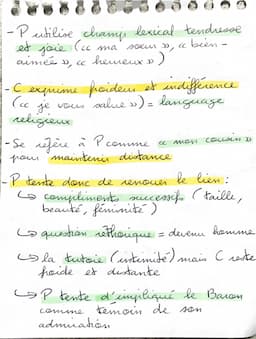 - P utilise champ lexical tendresse
et joie (« ma sœur », « bien-
aimée », « heureux »)
- C exprime froideur et indifférence
(« je vous salue ») = language
religieux
- Se réfère à P comme « mon cousin »
pour maintenir distance
- P tente donc de renouer le lien :
↳ compliments successifs (taille,
beauté, féminité)
↳ question réthorique = devenu homme
↳ la tutoie (intimité) mais C reste
froide et distante
↳ P tente d'impliqué le Baron
comme témoin de son
admiration